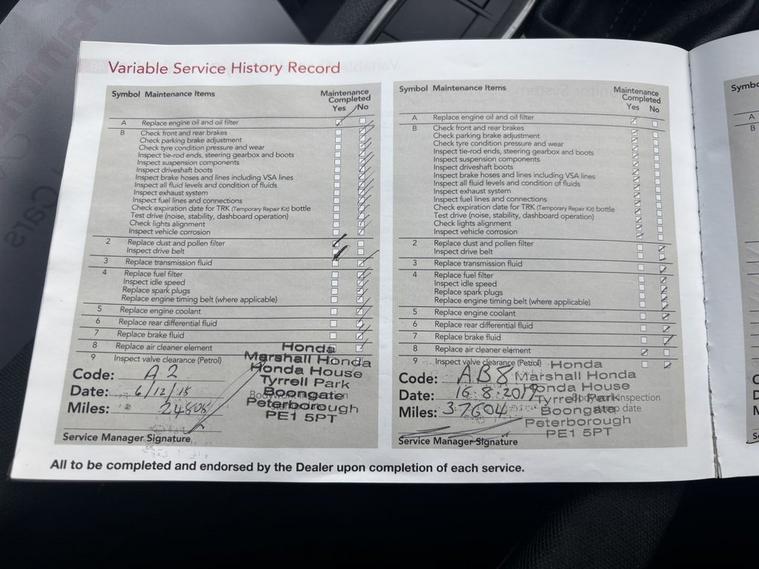 Variable Service History Record
Symbol Maintenance Items
Maintenance
Completed
Yes No
A Replace engine oil and oil filter
B Check front and rear brakes
Check parking brake adjustment
Check tyre condition pressure and wear
Inspect tie-rod ends, steering gearbox and boots
Inspect suspension components
Inspect driveshaft boots
Inspect brake hoses and lines including VSA lines
Inspect all fluid levels and condition of fluids
Inspect exhaust system
Inspect fuel lines and connections
Check expiration date for TRK (Temporary Repair Kit) bottle
Test drive (noise, stability, dashboard operation)
Check lights alignment
Inspect vehicle corrosion
2 Replace dust and pollen filter
Inspect drive belt
3 Replace transmission fluid
4 Replace fuel filter
Inspect idle speed
Replace spark plugs
Replace engine timing belt (where applicable)
5 Replace engine coolant
6 Replace rear differential fluid
7 Replace brake fluid
8 Replace air cleaner element
9 Inspect valve clearance (Petrol)
Code: A 2
Date: 6/12/15
Miles: 24808
Honda
Marshall Honda
Honda House
Tyrrell Park
Boongate
Peterborough
PE1 5PT
Service Manager Signature
Symbol Maintenance Items
Maintenance
Completed
Yes No
A Replace engine oil and oil filter
B Check front and rear brakes
Check parking brake adjustment
Check tyre condition pressure and wear
Inspect tie-rod ends, steering gearbox and boots
Inspect suspension components
Inspect driveshaft boots
Inspect brake hoses and lines including VSA lines
Inspect all fluid levels and condition of fluids
Inspect exhaust system
Inspect fuel lines and connections
Check expiration date for TRK (Temporary Repair Kit) bottle
Test drive (noise, stability, dashboard operation)
Check lights alignment
Inspect vehicle corrosion
2 Replace dust and pollen filter
Inspect drive belt
3 Replace transmission fluid
4 Replace fuel filter
Inspect idle speed
Replace spark plugs
Replace engine timing belt (where applicable)
5 Replace engine coolant
6 Replace rear differential fluid
7 Replace brake fluid
8 Replace air cleaner element
9 Inspect valve clearance (Petrol)
Code: AB8
Date: 16.8.2017
Miles: 37604
Honda
Marshall Honda
Honda House
Tyrrell Park
Boongate
Peterborough
PE1 5PT
Service Manager Signature
All to be completed and endorsed by the Dealer upon completion of each service.
A
B